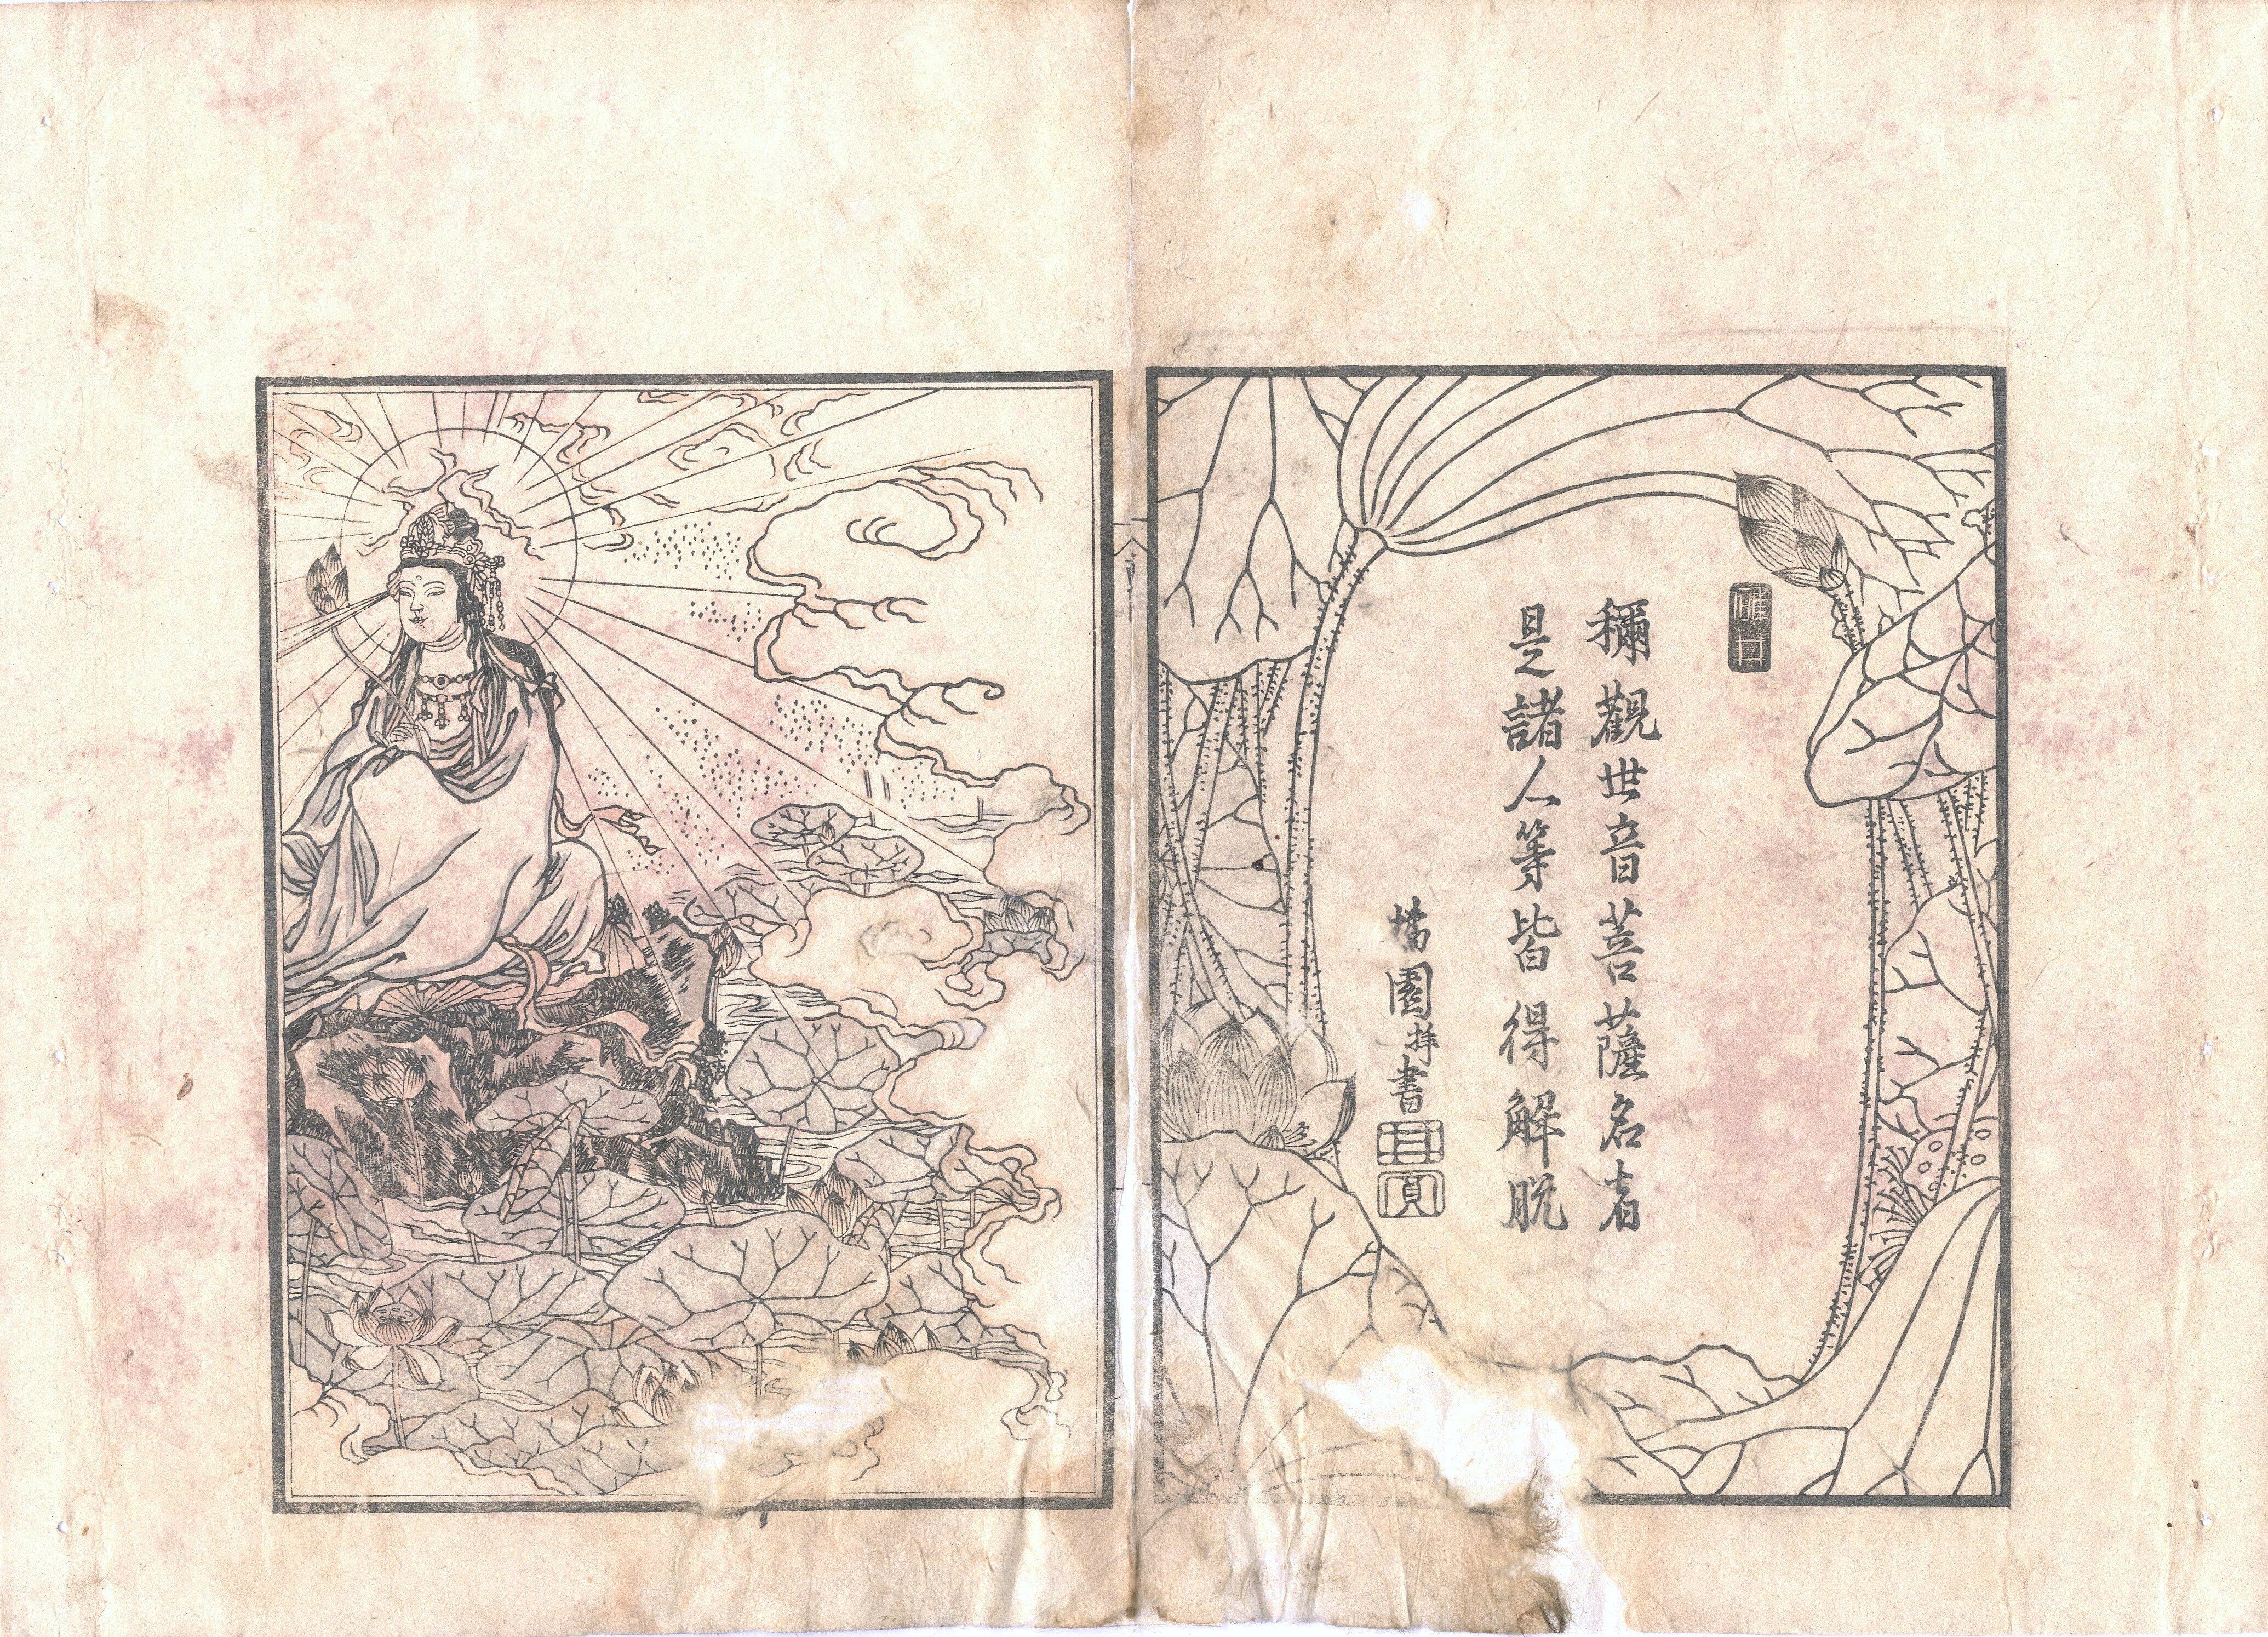 稱觀世音菩薩名者
是諸人等皆得解脫
園拜書